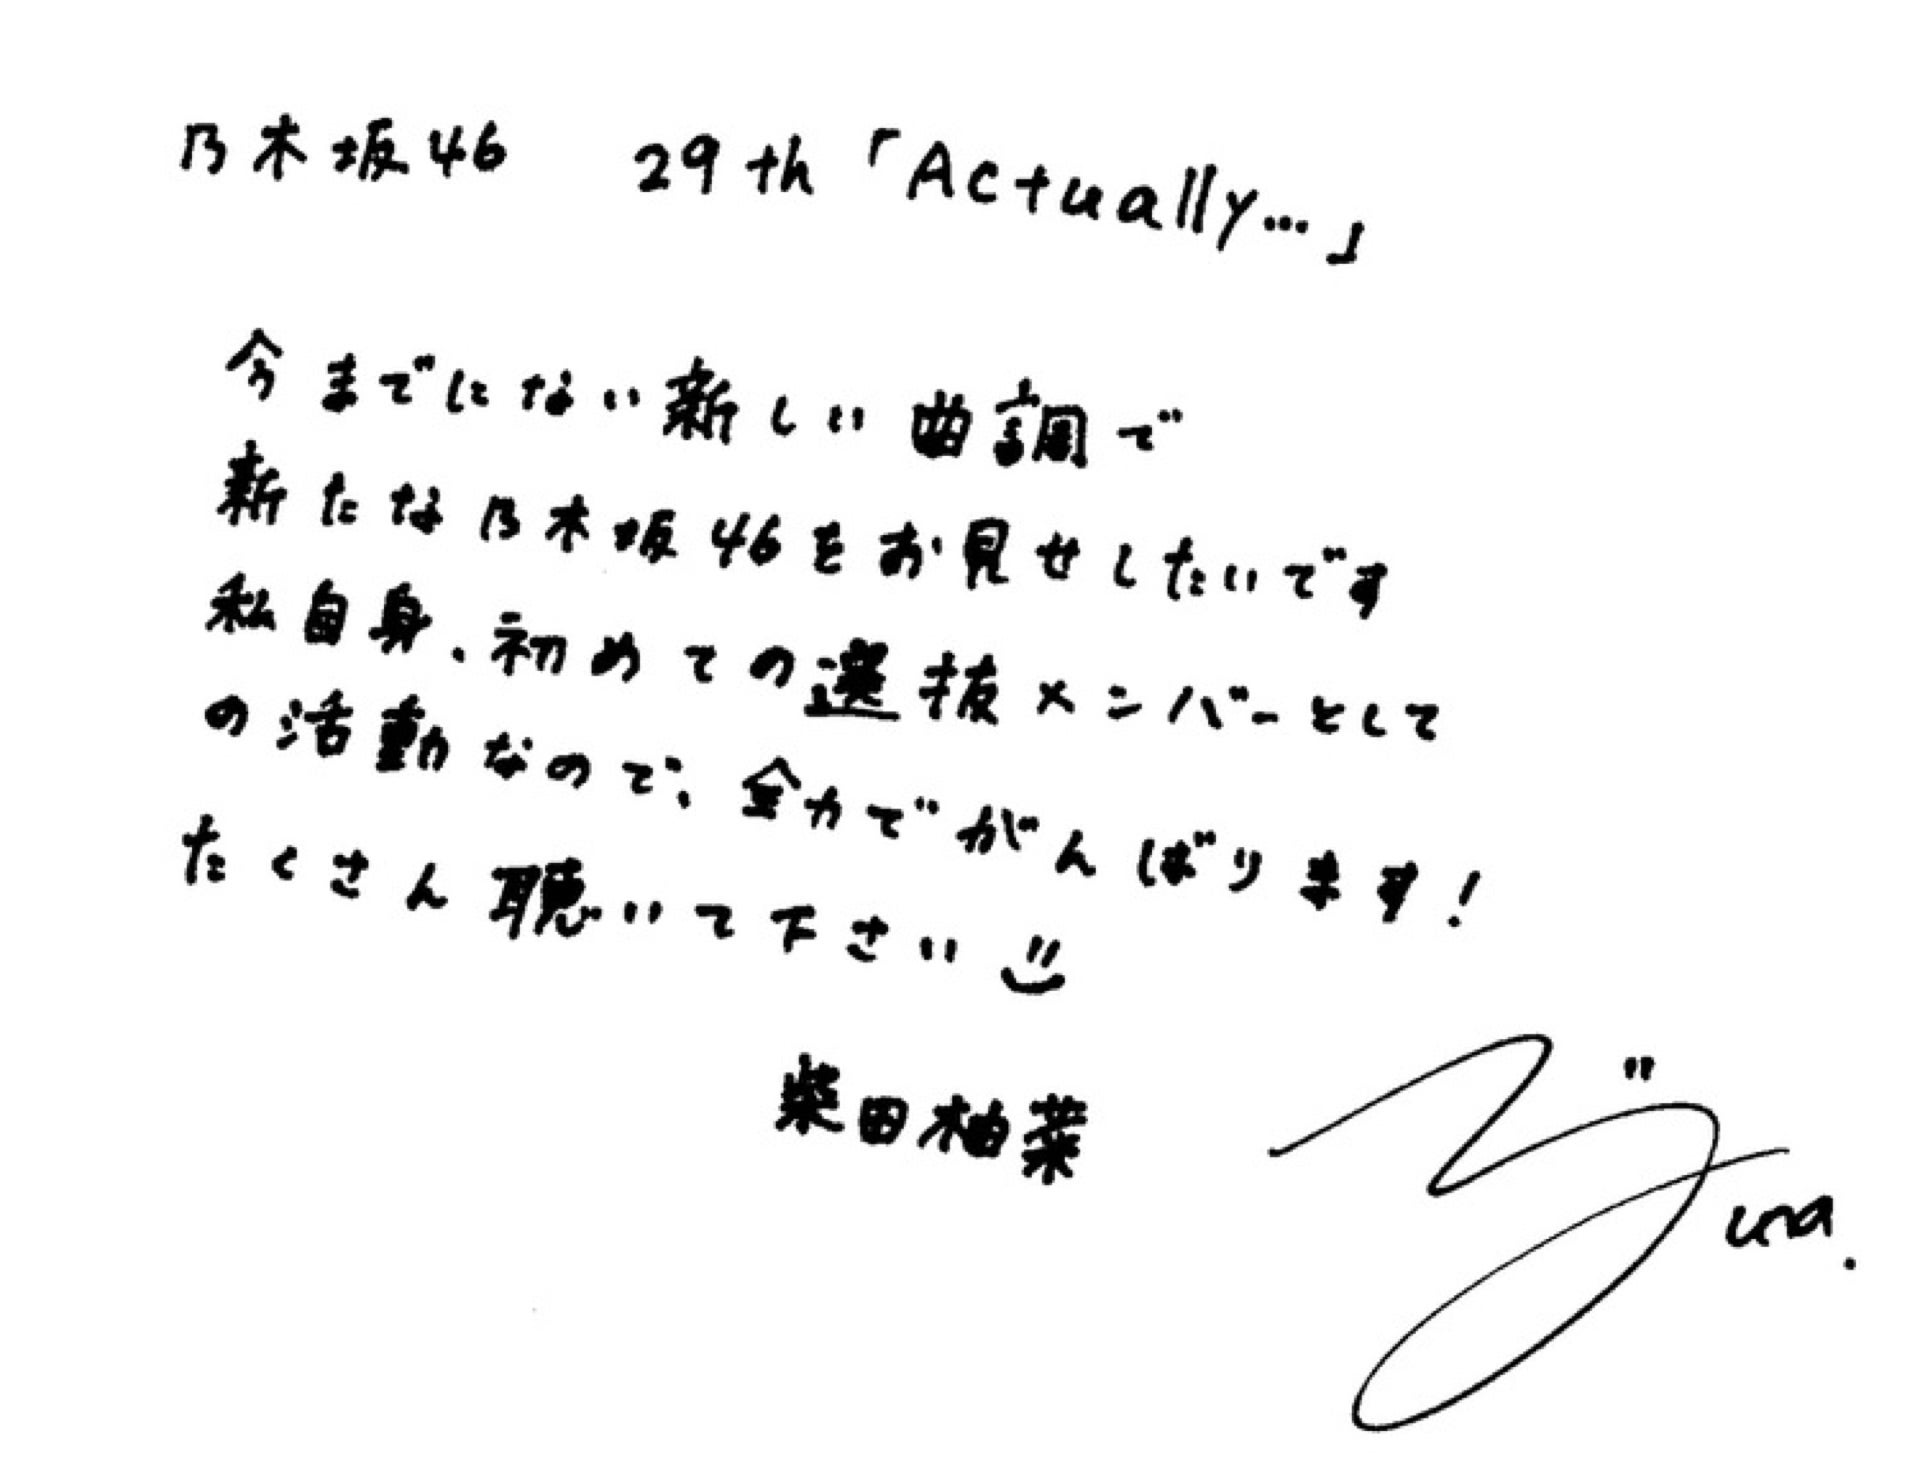 乃木坂46　29th「Actually...」
今までにない新しい曲調で
新たな乃木坂46をお見せしたいです
私自身、初めての選抜メンバーとして
の活動なので、全力でがんばります！
たくさん聴いて下さい
柴田柚菜
Yuna.